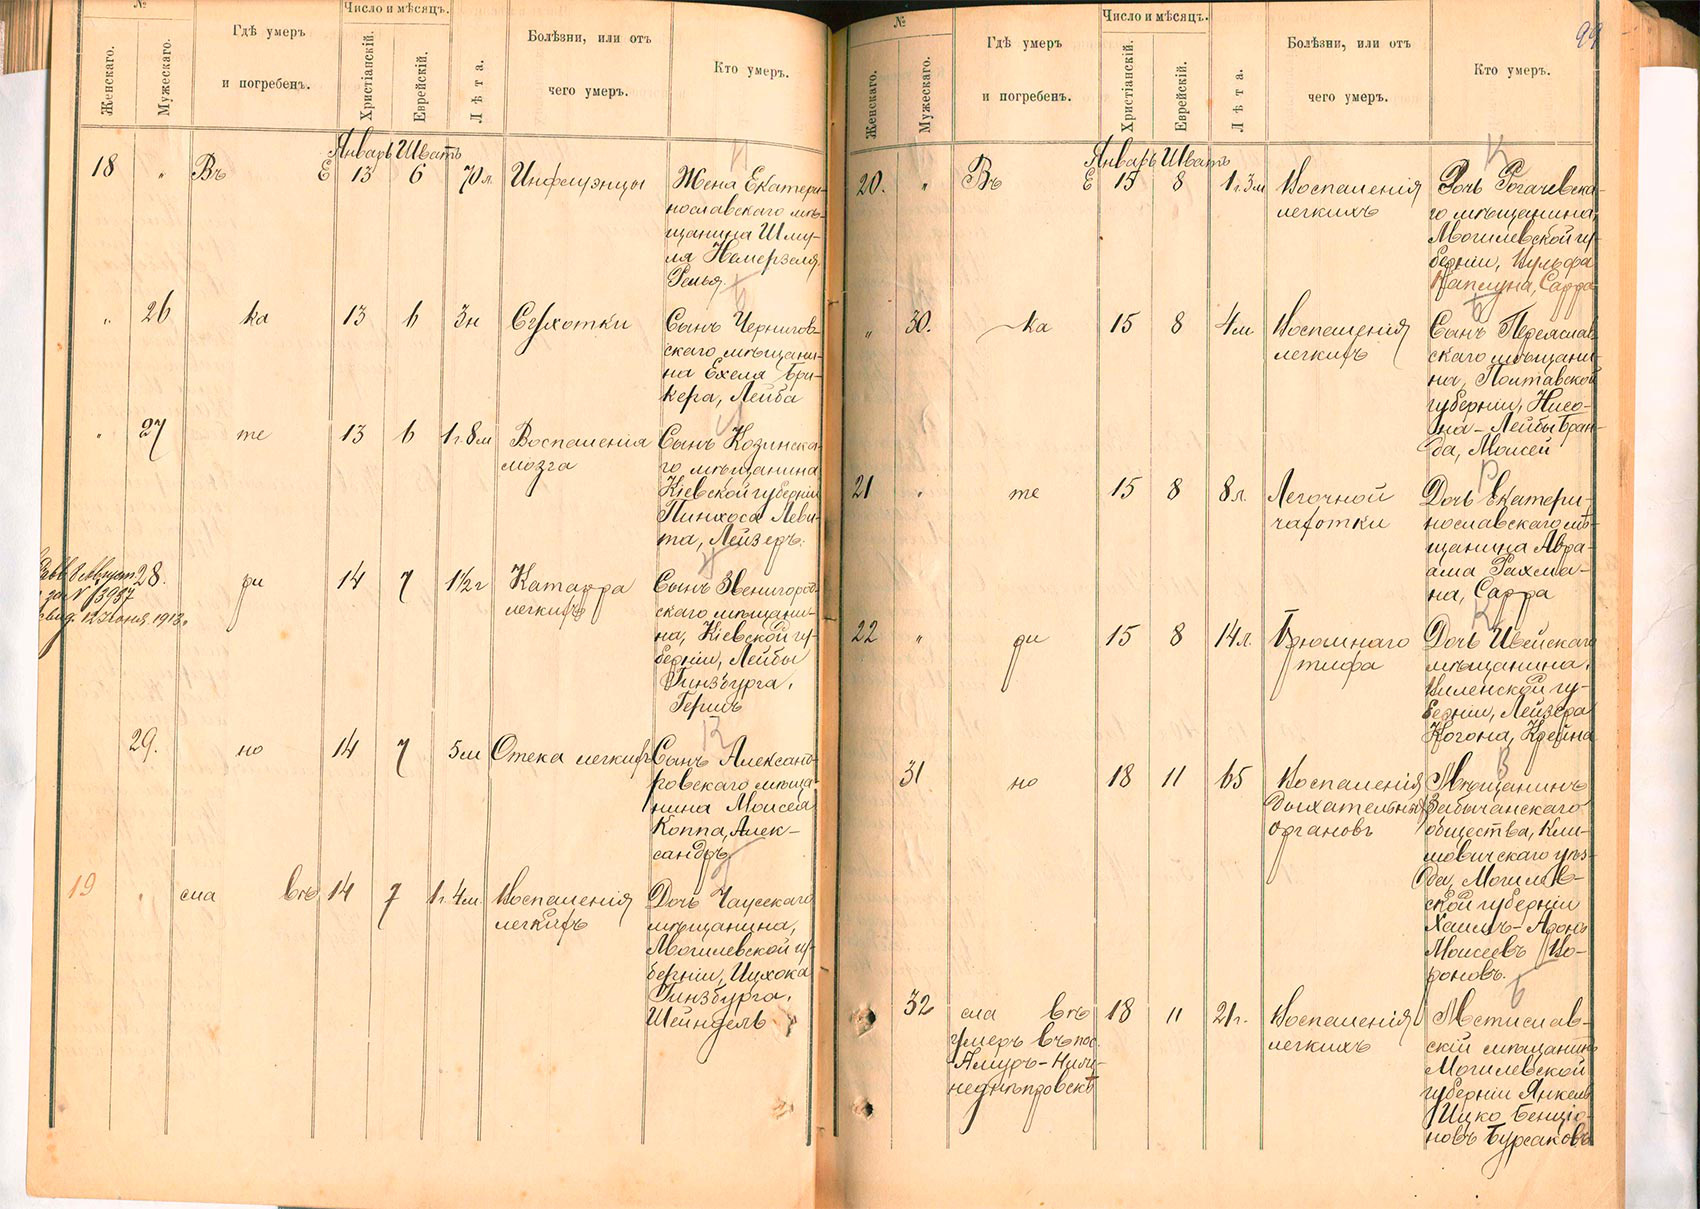 №
Женскаго.
Мужескаго.
Гдѣ умеръ
и погребенъ.
Число и мѣсяцъ.
Христіанскій.
Еврейскій.
Лѣта.
Болѣзни, или отъ
чего умеръ.
Кто умеръ.
Январь Шватъ
18 " Въ Е 13 6 70 л. Инфлуэнцы
Жена Екатери-
нославскаго мѣ-
щанина Шму-
ля
" 26 ка 13 6 3 н Сухотки
Сынъ Чернигов-
скаго мѣщани-
на Ехеля Бри-
кера, Лейба
" 27 те 13 6 1 г. 8 м Воспаленія
мозга
Сынъ Козинска-
го мѣщанина
Кіевской губерніи
Пинхоса Леви-
та, Лейзеръ.
28. ри 14 7 1½ г Катарра
легкихъ
12 Іюня 1913.
Сынъ Звенигород-
скаго мѣщани-
на, Кіевской гу-
берніи, Лейбы
Гинзбурга,
Гершъ
29. но 14 7 5 м Отека легкихъ
Сынъ Александ-
ровскаго мѣща-
нина Моисея
Коппа, Алек-
сандръ
19 " сла вѣ 14 7 1 г. 4 м. Воспаленія
легкихъ
Дочь Чаусскаго
мѣщанина,
Могилевской гу-
берніи, Ицхока
Гинзбурга,
Шейндель
99
№
Женскаго.
Мужескаго.
Гдѣ умеръ
и погребенъ.
Число и мѣсяцъ.
Христіанскій.
Еврейскій.
Лѣта.
Болѣзни, или отъ
чего умеръ.
Кто умеръ.
Январь Шватъ
20. " Въ Е 15 8 1 г. 3 м Воспаленія
легкихъ
К
Дочь Рогачевска-
го мѣщанина,
Могилевской гу-
берніи, Вульфа
Каплуна, Сарра
" 30. ка 15 8 4 м. Воспаленія
легкихъ
Б
Сынъ Переяслав-
скаго мѣщани-
на, Полтавской
губерніи, Нисо-
на-Лейбы Бран-
да, Моисей
21 " те 15 8 8 л. Легочной
чахотки
Р
Дочь Екатери-
нославскаго мѣ-
щанина Авра-
ама Рахма-
на, Сарра
22 " ри 15 8 14 л. Брюшнаго
тифа
К
Дочь Ивейскаго
мѣщанина,
Виленской гу-
берніи, Лейзера
Когона, Крейна
31 но 18 11 65 Воспаленія
дыхательныхъ
органовъ
В
Мѣщанинъ
Забычанскаго
общества, Кли-
мовичскаго уѣз-
да, Могилев-
ской губерніи
Хаимъ-Аронъ
Моисеевъ Во-
роновъ.
32 сла вѣ 18 11 21 г. Воспаленія
легкихъ
умеръ въ пос.
Амуръ-Ниж-
неднѣпровскъ
Б
Мстислав-
скій мѣщанинъ
Могилевской
губерніи Янкель
Ицко Бенціо-
новъ Бурсаковъ